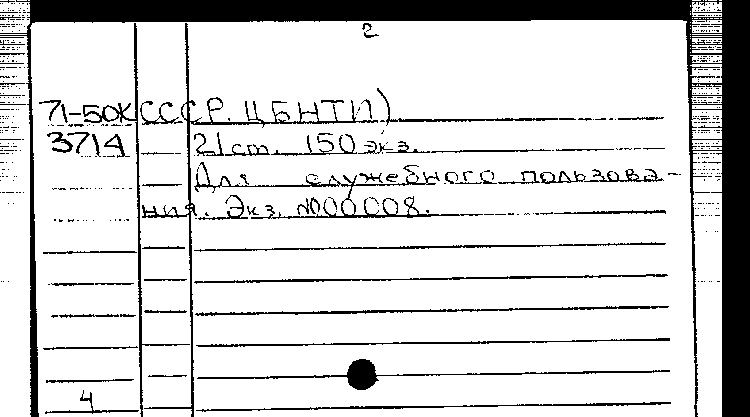 2
71-50К СССР. ЦБНТИ)
3714 21 ст. 150 экз.
Для служебного пользова-
ния. Экз. №000008.
4